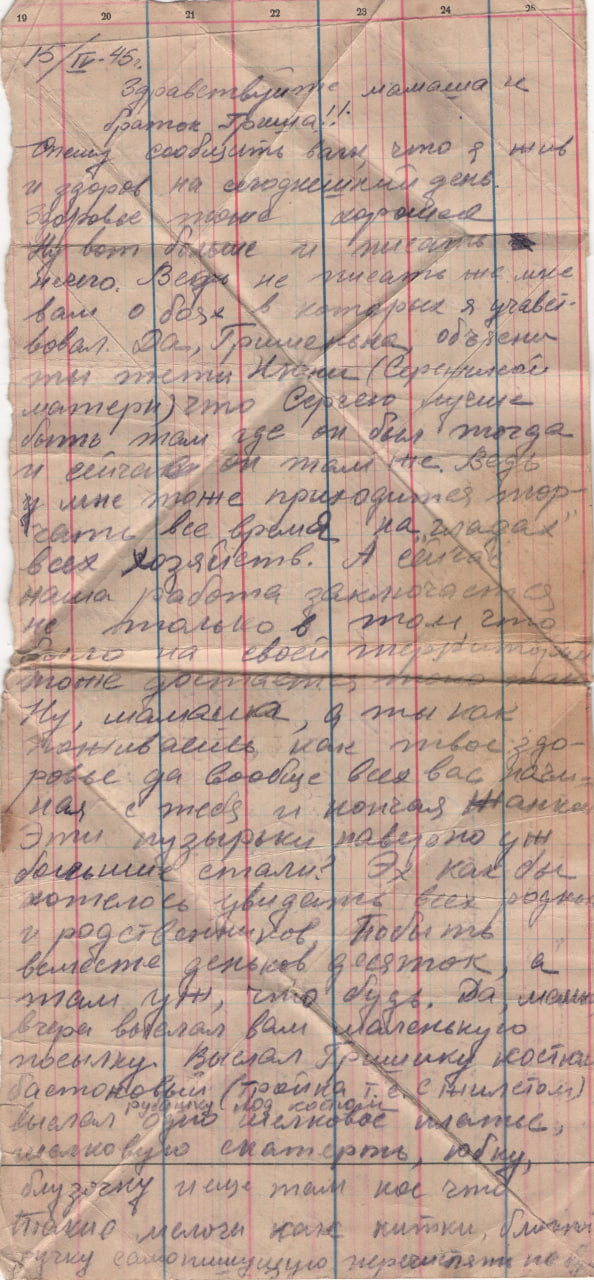 19 20 21 22 23 24 25
15/IV-45г.
Здравствуйте мамаша и
браток Гриша!!
Спешу сообщить вам, что я жив
и здоров на сегоднешний день.
Здоровье тоже хорошее
Ну вот больше и писать
нечего. Ведь не писать же мне
вам о боях в которых я учавст-
вовал. Да, Гришенька, объясни
ты тети Нюни (Сережиной
матери) что Сергею лучше
быть там где он был тогда
и сейчас он там же. Ведь
у мне тоже приходится тор-
чать все время на „гладах"
всех хозяйств. А сейчас
наша работа заключается
не только в том что
было на своей территории
тоже достается
Ну, мамашка, а ты как
поживаешь как твое здо-
ровье да вообще всех вас начи-
ная с тебя и кончая Жанкой
Эти пузырьки наверно уж
большие стали? Эх как бы
хотелось увидать всех родных
и родственников, побыть
вместе деньков десяток, а
там уж, что будь. Да, мама
вчера выслал вам маленькую
посылку. Выслал Гришику костюм
бастоновый (тройка т.е. с жилетом)
рубашку под костюм
выслал одно шелковое платье,
шелковую скатерть, юбку,
блузочку и еще там кое что
Такие мелочи как нитки,
ручку самопишущую перечислять не